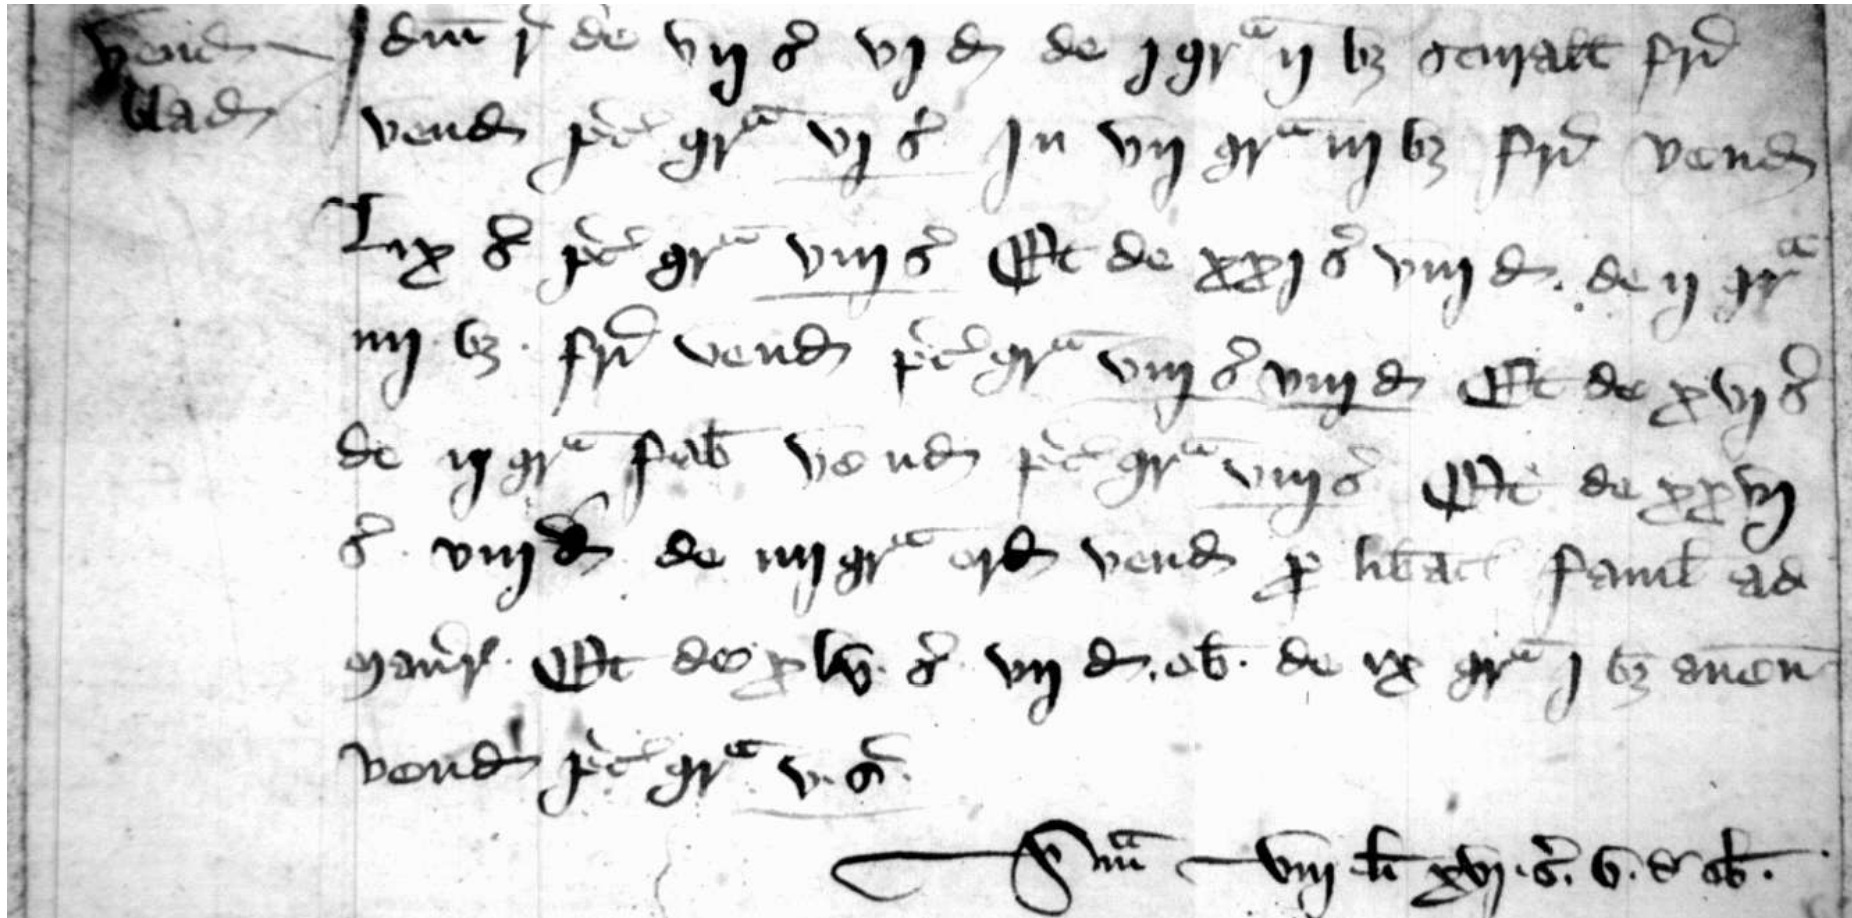 Vend Idm r de vij s vj d de j gra ij bz scurall frd
blad vend pc gra vj s In vij gra iij bz frd vend
Lix s pc gra viij s Et de xxj s viij d. de ij gra
iiij bz. frd vend pc gra viij s viij d Et de xvj s
de ij gra fab vend pc gra viij s Et de xxvj
s. viij d de iiij gra ord vend p libac famul ad
maner. Et de xlv. s. vij d. ob. de ix gra j bz aven
vend pc gra v. s.
Sma viij li xvj. s. v. d ob.